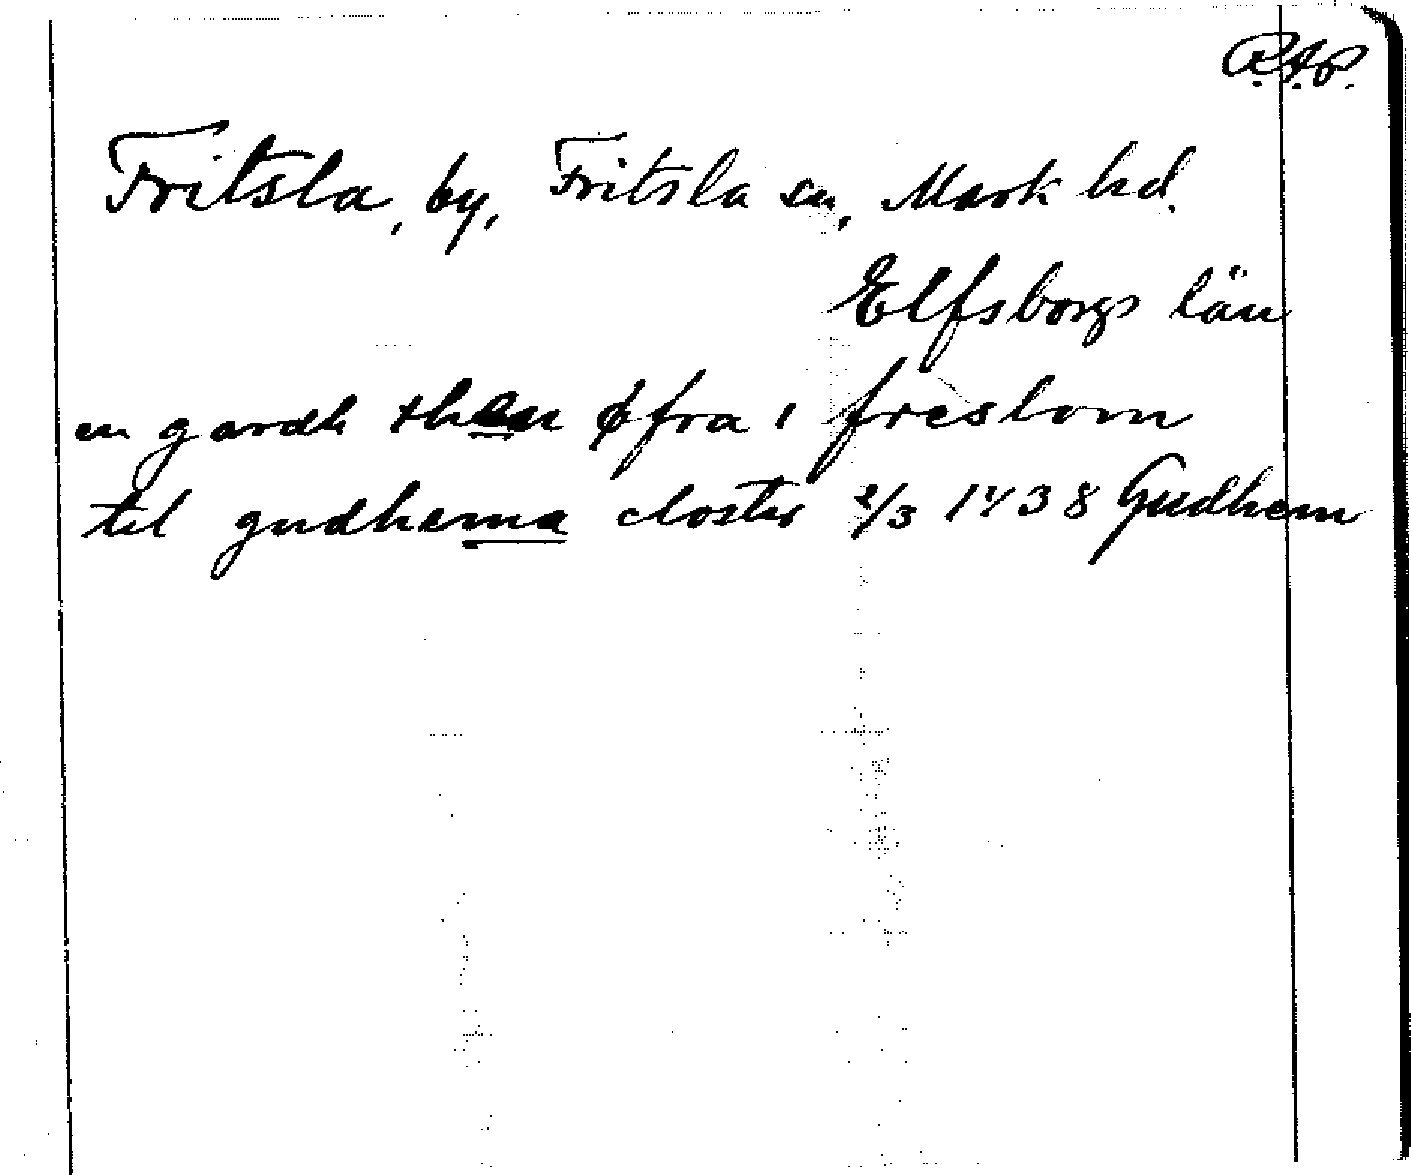 R.A.P.
Fritsla, by, Fritsla sn, Mark hd.
Elfsborgs län
en gardh then øfra i freslom
til gudhema closter 2/3 1438 Gudhem